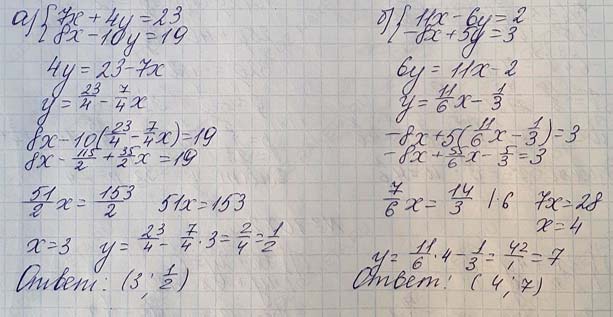 а) { 7x + 4y = 23
8x - 10y = 19
4y = 23 - 7x
y = 23/4 - 7/4 x
8x - 10(23/4 - 7/4 x) = 19
8x - 115/2 + 35/2 x = 19
51/2 x = 153/2 51x = 153
x = 3 y = 23/4 - 7/4 · 3 = 2/4 = 1/2
Ответ: (3; 1/2)
б) { 11x - 6y = 2
-8x + 5y = 3
6y = 11x - 2
y = 11/6 x - 1/3
-8x + 5(11/6 x - 1/3) = 3
-8x + 55/6 x - 5/3 = 3
7/6 x = 14/3 | · 6 7x = 28
x = 4
y = 11/6 · 4 - 1/3 = 42/ = 7
Ответ: (4; 7)